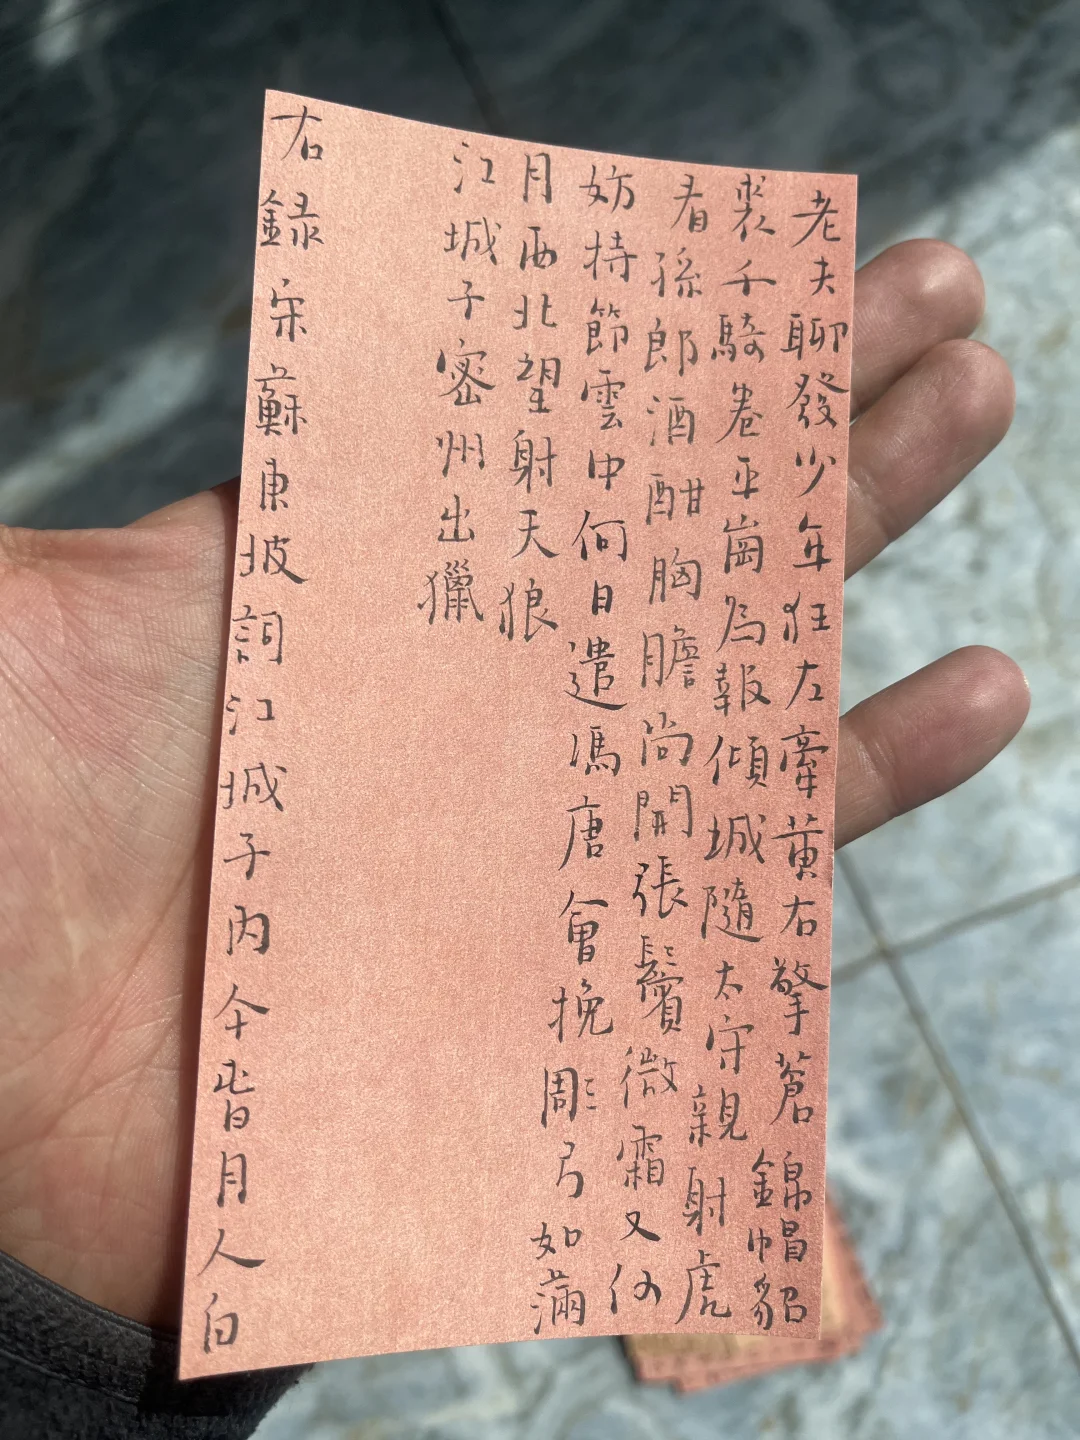 老夫聊發少年狂左牽黃右擎蒼錦帽貂
裘千騎卷平崗為報傾城隨太守親射虎
看孫郎酒酣胸膽尚開張鬢微霜又何
妨持節雲中何日遣馮唐會挽彫弓如滿
月西北望射天狼
江城子密州出獵
右録宋蘇東坡詞江城子丙午旾月人白